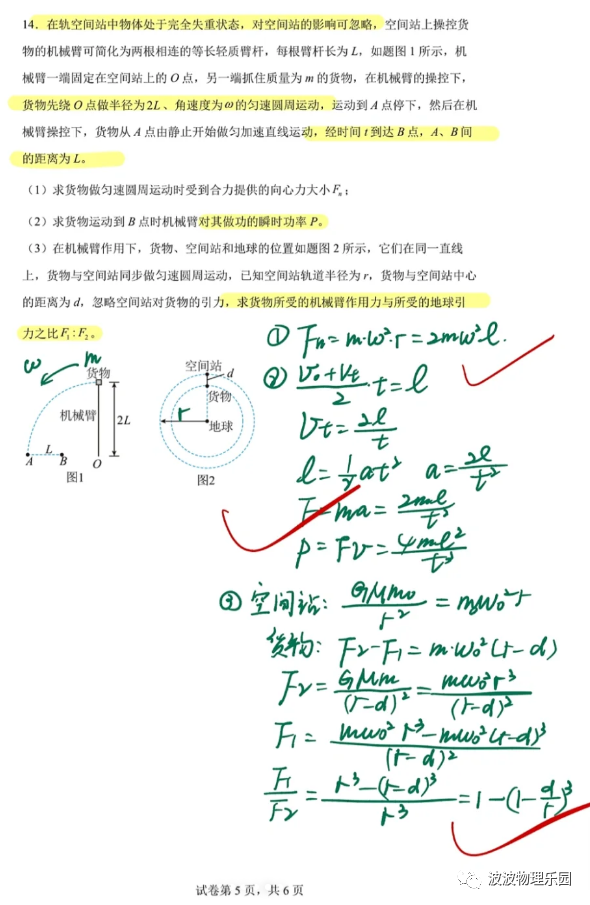 14. 在轨空间站中物体处于完全失重状态，对空间站的影响可忽略，空间站上操控货
物的机械臂可简化为两根相连的等长轻质臂杆，每根臂杆长为 L，如题图 1 所示，机
械臂一端固定在空间站上的 O 点，另一端抓住质量为 m 的货物，在机械臂的操控下，
货物先绕 O 点做半径为 2L、角速度为ω的匀速圆周运动，运动到 A 点停下，然后在机
械臂操控下，货物从 A 点由静止开始做匀加速直线运动，经时间 t 到达 B 点，A、B 间
的距离为 L。
（1）求货物做匀速圆周运动时受到合力提供的向心力大小 Fₙ；
（2）求货物运动到 B 点时机械臂对其做功的瞬时功率 P。
（3）在机械臂作用下，货物、空间站和地球的位置如题图 2 所示，它们在同一直线
上，货物与空间站同步做匀速圆周运动，已知空间站轨道半径为 r，货物与空间站中心
的距离为 d，忽略空间站对货物的引力，求货物所受的机械臂作用力与所受的地球引
力之比 F₁:F₂。
ω
m
货物
机械臂
2L
L
A
B
O
图1
空间站
d
货物
r
地球
图2
① Fn = m·ω²·r = 2mω²l.
② (v₀+vt)/2 · t = l
vt = 2l/t
l = 1/2 at² a = 2l/t²
F = ma = 2ml/t²
P = Fv = 4ml²/t³
③ 空间站: GMm₀/r² = m₀ω₀²r
货物: F₂-F₁ = m·ω₀²(r-d)
F₂ = GMm/(r-d)² = mω₀²r³/(r-d)²
F₁ = (mω₀²r³-mω₀²(r-d)³)/(r-d)²
F₁/F₂ = (r³-(r-d)³)/r³ = 1-(1-d/r)³
试卷第 5 页，共 6 页
波波物理乐园